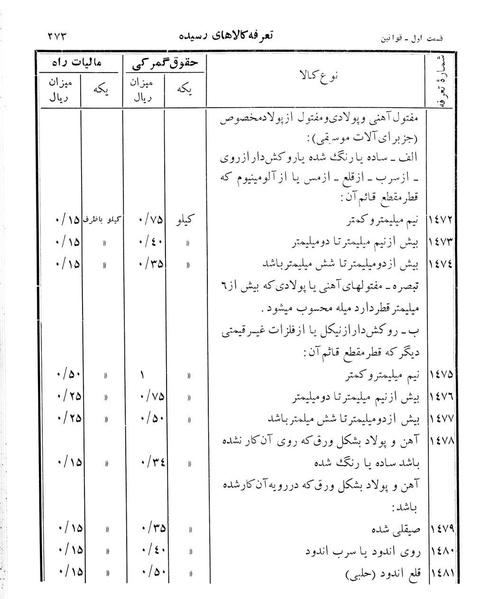 قسمت اول ـ قوانین تعرفه کالاهای رسیده ۲۷۳
شمارهٔ تعرفه نوع کالا حقوق گمرکی مالیات راه
یکه میزان ریال یکه میزان ریال
مفتول آهنی و پولادی و مفتول از پولاد مخصوص
(جز برای آلات موسیقی):
الف ـ ساده یا رنگ شده یا روکش دار از روی
ـ از سرب ـ از قلع ـ از مس یا از آلومینیوم که
قطر مقطع قائم آن:
۱٤۷۲ نیم میلیمتر و کمتر کیلو ۰/۷۵ کیلو باظرف ۰/۱۵
۱٤۷۳ بیش از نیم میلیمتر تا دو میلیمتر » ۰/٤۰ » ۰/۱۵
۱٤۷٤ بیش از دو میلیمتر تا شش میلیمتر باشد » ۰/۳۵ » ۰/۱۵
تبصره ـ مفتولهای آهنی یا پولادی که بیش از ٦
میلیمتر قطر دارد میله محسوب میشود .
ب ـ روکش دار از نیکل یا از فلزات غیر قیمتی
دیگر که قطر مقطع قائم آن:
۱٤۷۵ نیم میلیمتر و کمتر » ۱ » ۰/۵۰
۱٤۷٦ بیش از نیم میلیمتر تا دو میلیمتر » ۰/۷۵ » ۰/۲۵
۱٤۷۷ بیش از دو میلیمتر تا شش میلمتر باشد » ۰/۵۰ » ۰/۲۵
۱٤۷۸ آهن و پولاد بشکل ورق که روی آن کار نشده
باشد ساده یا رنگ شده » ۰/۳٤ » ۰/۱۵
آهن و پولاد بشکل ورق که در رویه آن کار شده
باشد:
۱٤۷۹ صیقلی شده » ۰/۳۵ » ۰/۱۵
۱٤۸۰ روی اندود یا سرب اندود » ۰/٤۰ » ۰/۱۵
۱٤۸۱ قلع اندود (حلبی) » ۰/۵۰ » ۰/۱۵